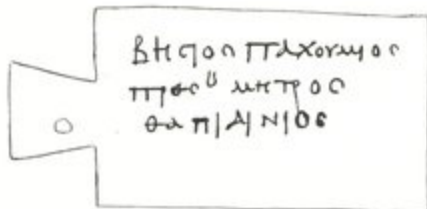 Βησιος Παχουμιος
πρεσβ μητρος
θαπ|α|ν|ος